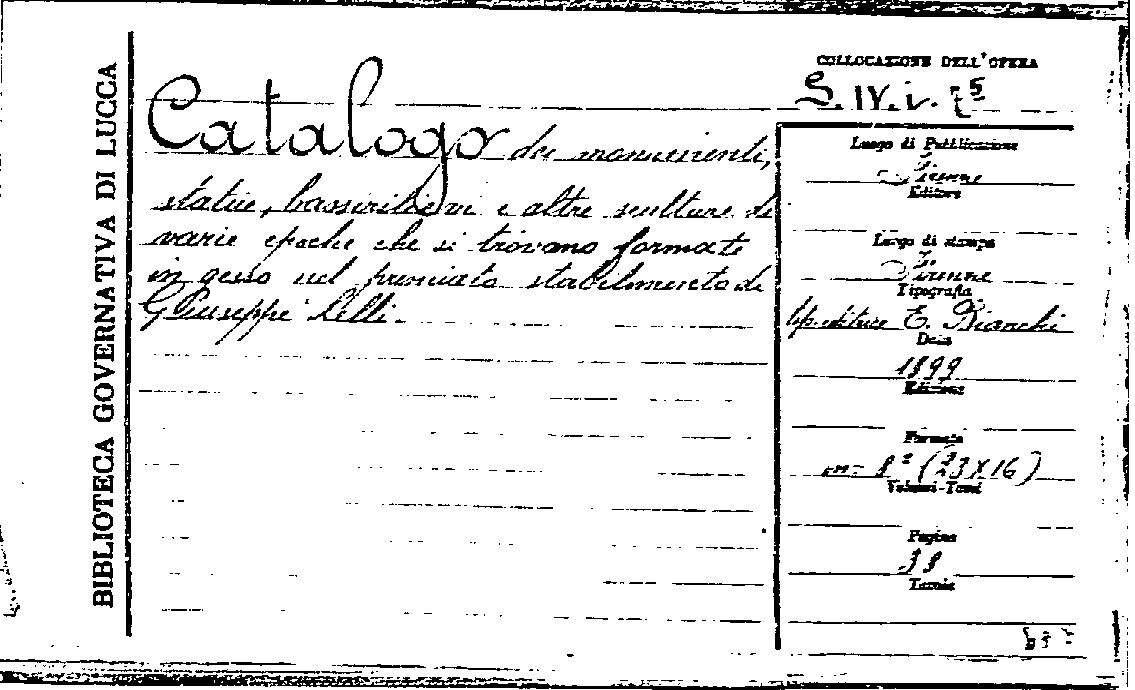 BIBLIOTECA GOVERNATIVA DI LUCCA
COLLOCAZIONE DELL'OPERA
S. IV. i. 75
Catalogo dei monumenti,
statue, bassirilievi e altre sculture di
varie epoche che si trovano formate
in gesso nel premiato stabilimento di
Giuseppe Lelli.
Luogo di Pubblicazione
Firenze
Editore
Luogo di stampa
Firenze
Tipografia
tip. editrice E. Bianchi
Data
1899
Edizione
Formato
in- 8° (23X16)
Volumi-Tomi
Pagine
38
Tavole